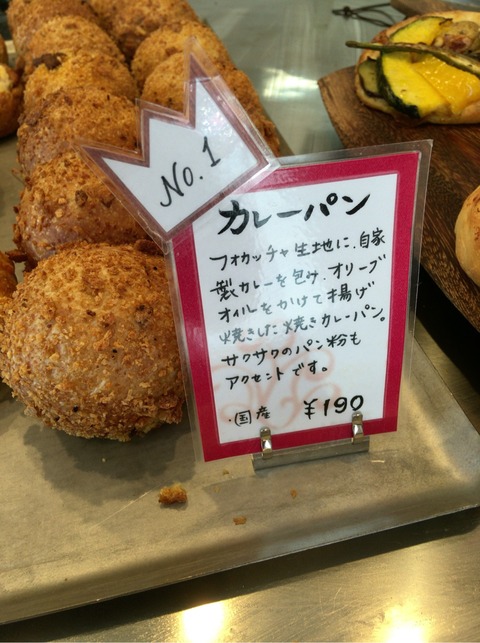 No.1
カレーパン
フォカッチャ生地に、自家
製カレーを包み、オリーブ
オイルをかけて揚げ
焼きした焼きカレーパン。
サクサクのパン粉も
アクセントです。
・国産 ¥190